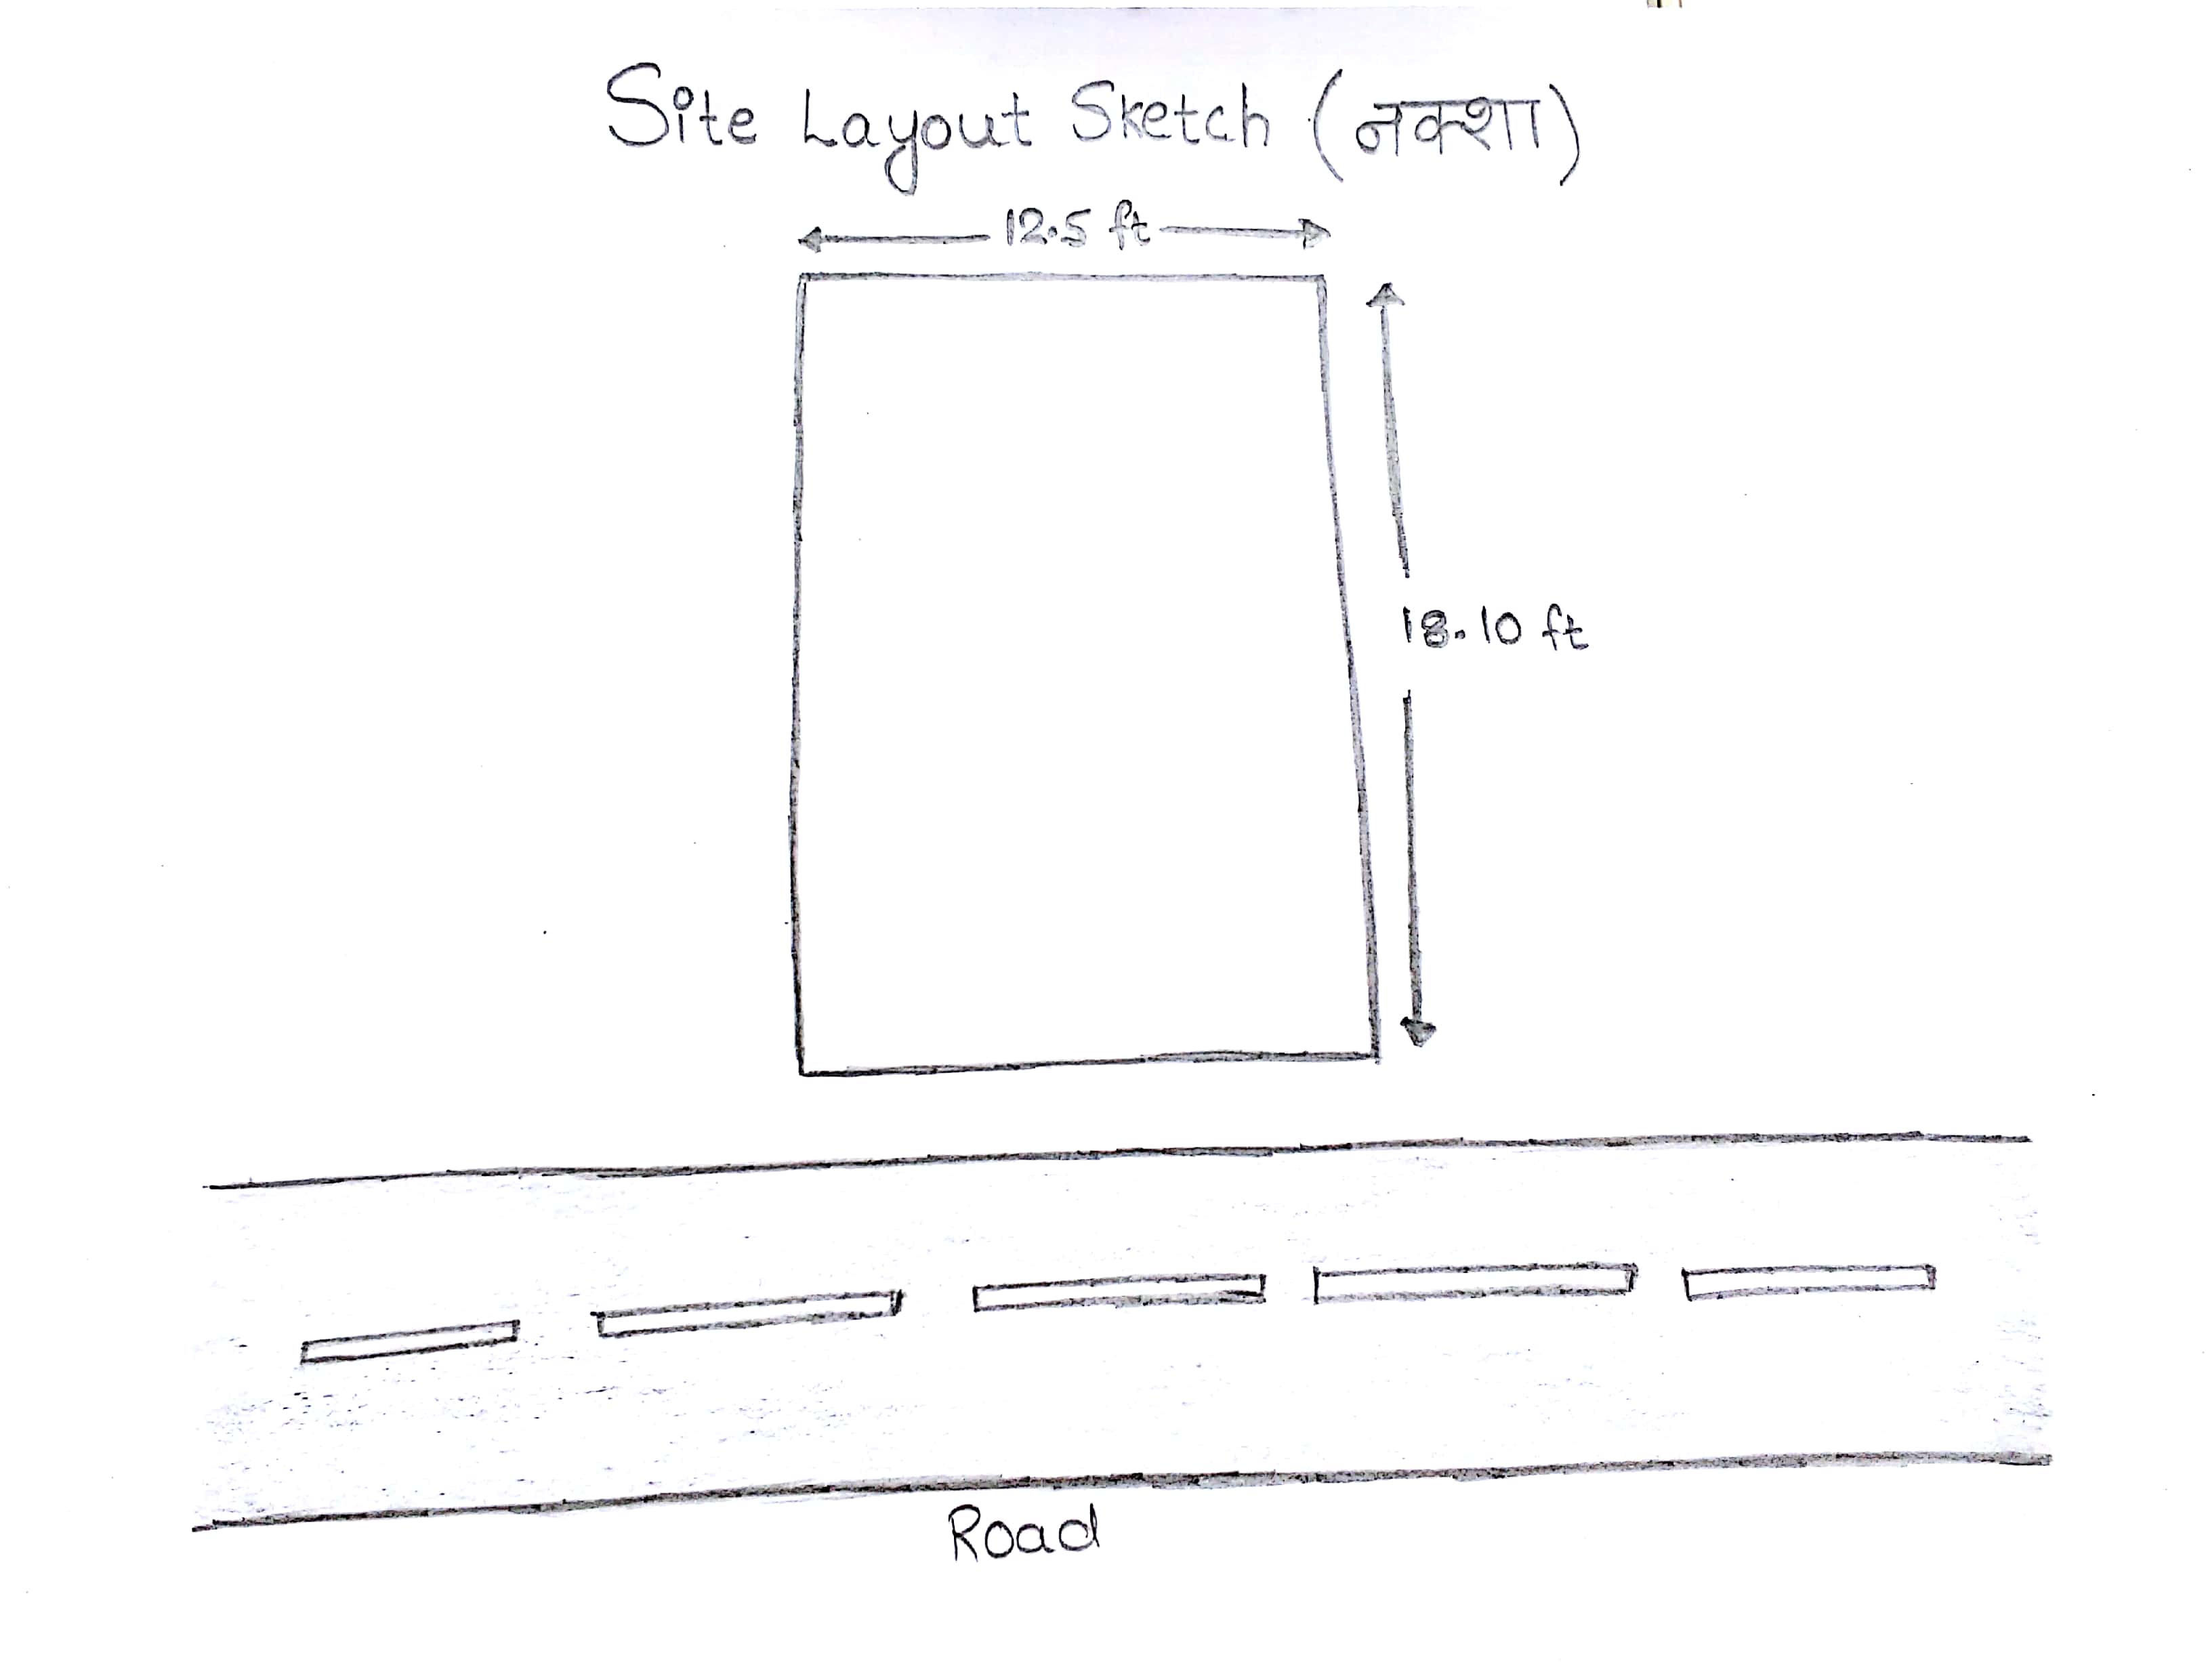 Site Layout Sketch (नक्शा)
12.5 ft
18.10 ft
Road